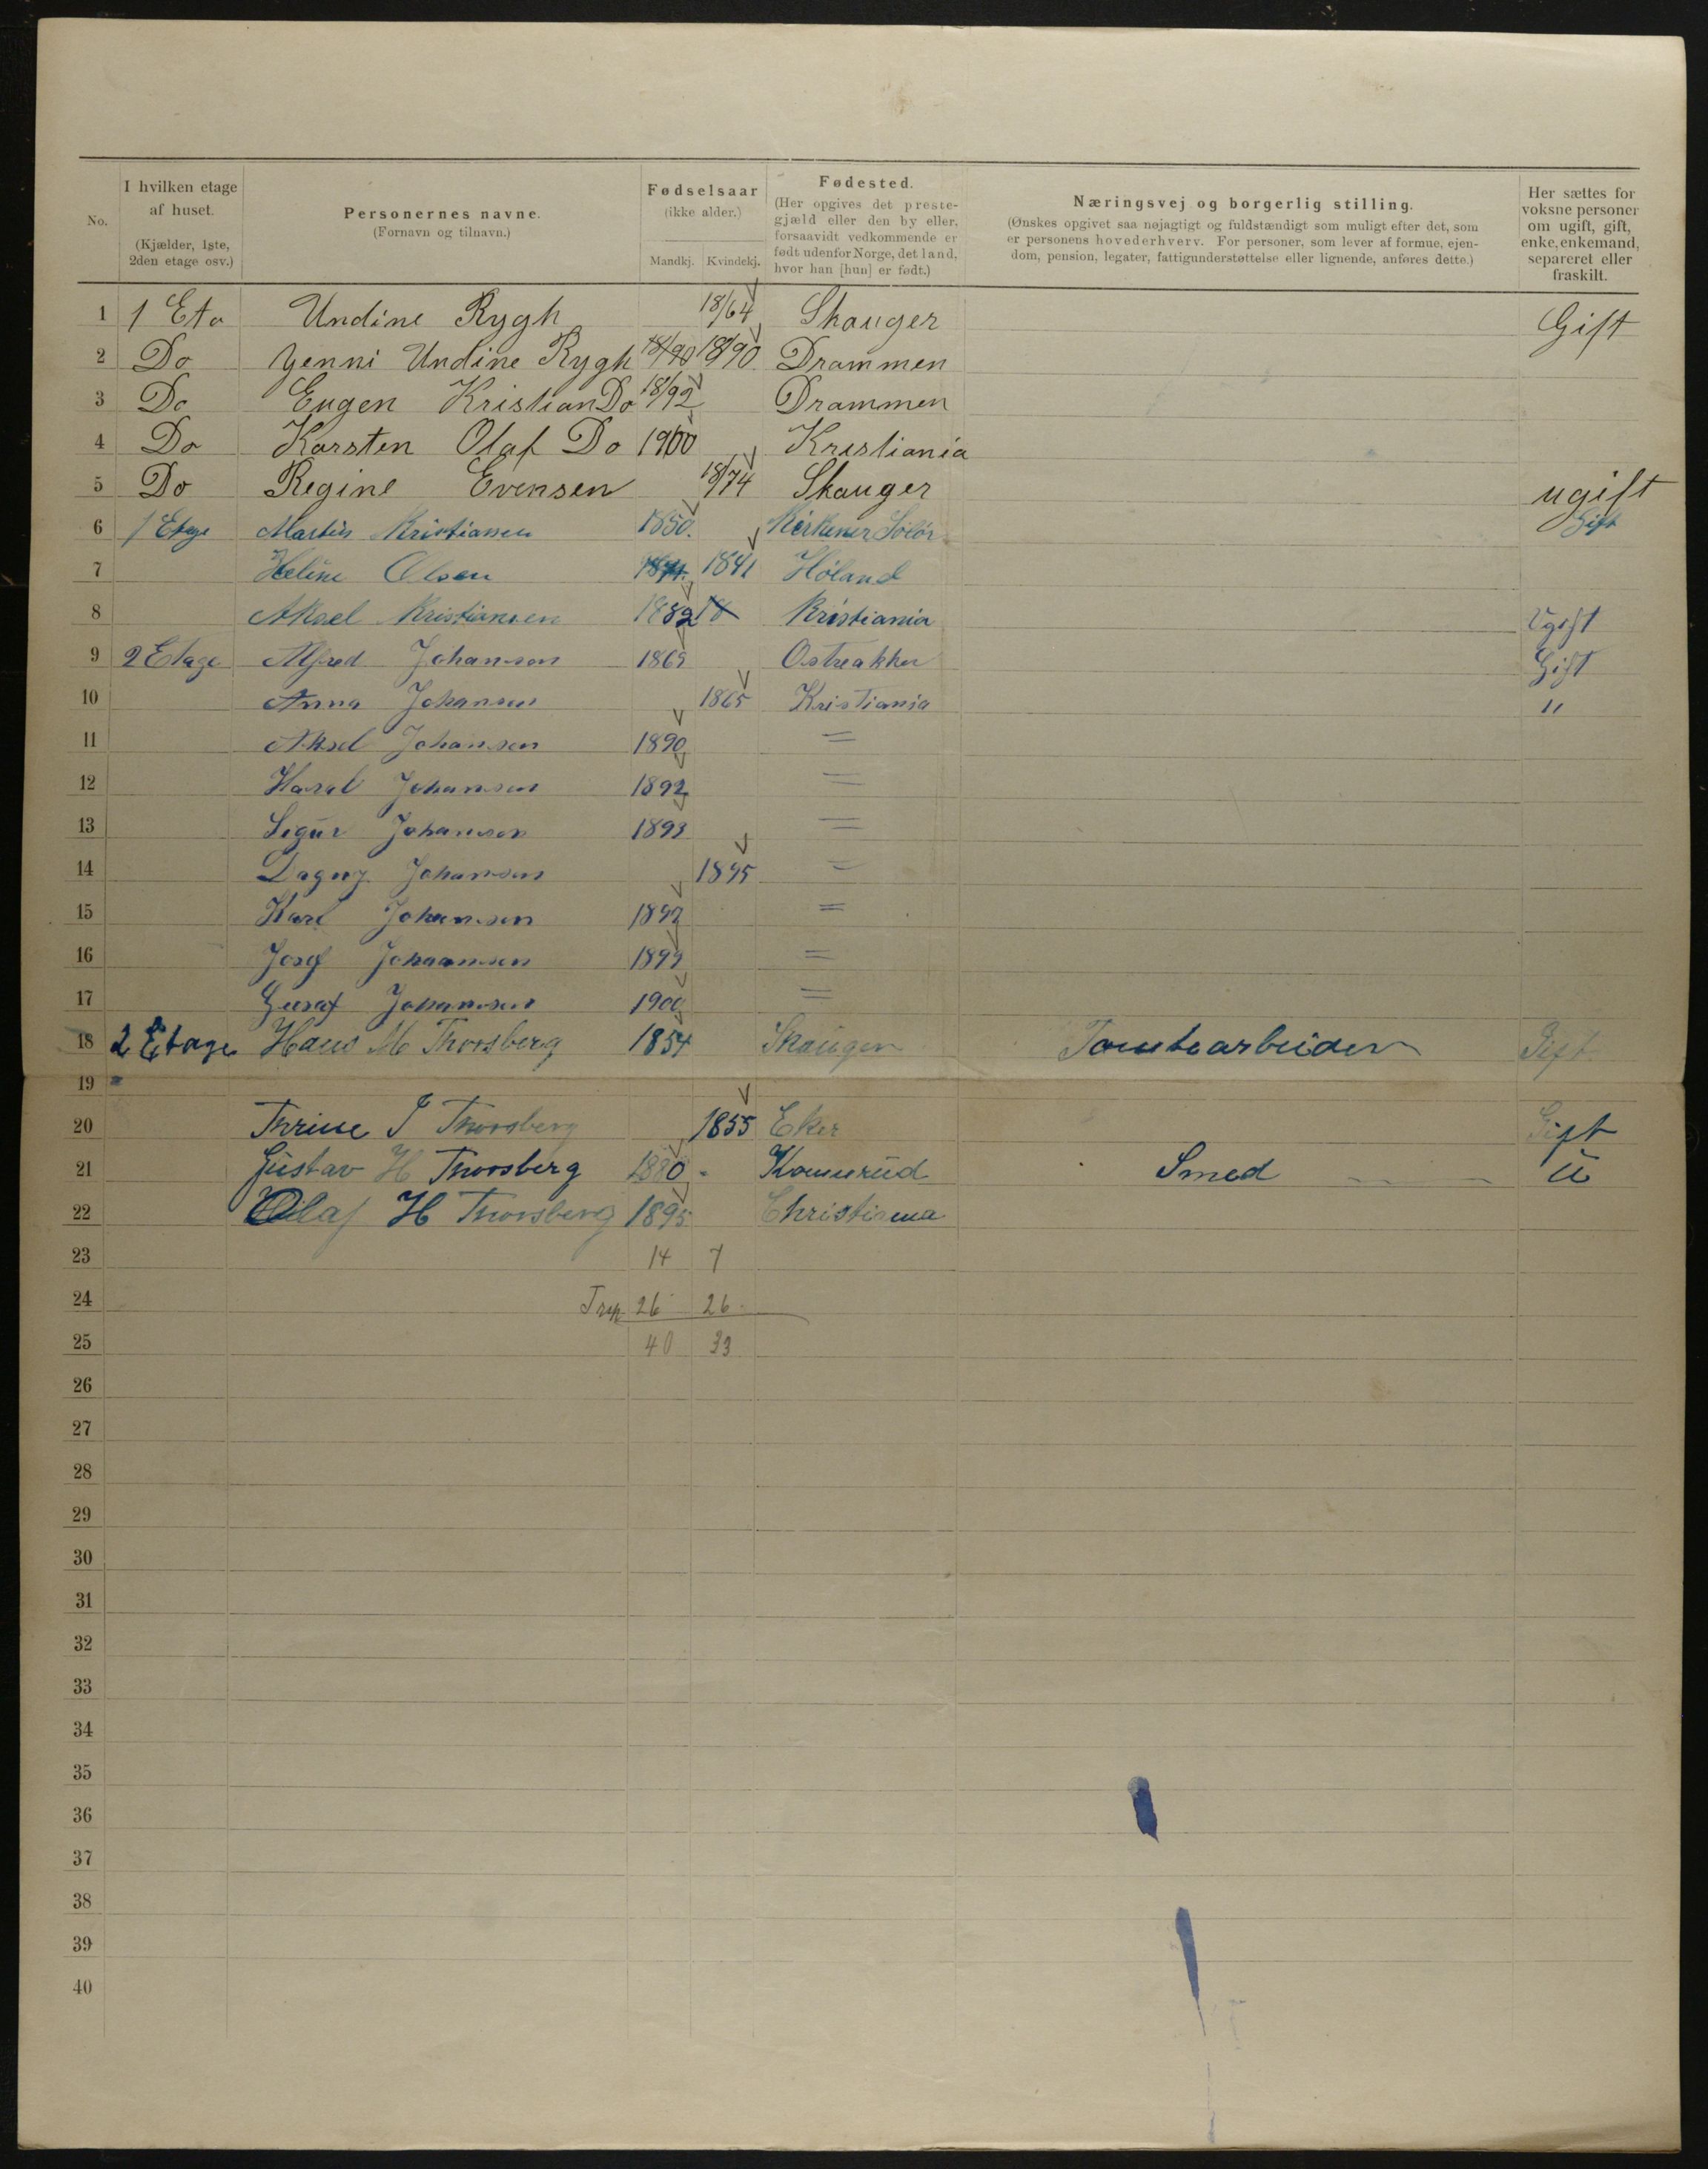 No.
I hvilken etage af huset.
(Kjælder, 1ste, 2den etage osv.)
Personernes navne.
(Fornavn og tilnavn.)
Fødselsaar
(ikke alder.)
Mandkj. Kvindekj.
Fødested.
(Her opgives det prestegjæld eller den by eller, forsaavidt vedkommende er født udenfor Norge, det land, hvor han [hun] er født.)
Næringsvej og borgerlig stilling.
(Ønskes opgivet saa nøjagtigt og fuldstændigt som muligt efter det, som er personens hovederhverv. For personer, som lever af formue, ejendom, pension, legater, fattigunderstøttelse eller lignende, anføres dette.)
Her sættes for voksne personer om ugift, gift, enke, enkemand, separeret eller fraskilt.
1 1 Eta Undine Rygh 18/64 Skauger Gift
2 Do Yenni Undine Rygh 18/90 18/90 Drammen
3 Do Eugen Kristian Do 18/92 Drammen
4 Do Karsten Olaf Do 1900 Kristiania
5 Do Regine Evensen 18/74 Skauger ugift
6 1 Etage Martin Kristiansen 1850. Solör Gift
7 Heline Olsen 1841 Höland
8 Aksel Kristiansen 1882 18 Kristiania Ugift
9 2 Etage Alfred Johansen 1865 Gift
10 Anna Johansen 1865 Kristiania "
11 Aksel Johansen 1890 =
12 Haral Johansen 1892 =
13 Sigur Johansen 1893 =
14 Dagny Johansen 1895 =
15 Karl Johansen 1897 =
16 Josef Johaansen 1899 =
17 Johansen 1900 =
18 2 Etage Hans M Thorsberg 1854 Skauger Tomtearbeider Gift
19 "
20 Thrine I Thorsberg 1855 Eker Gift
21 Gustav H Thorsberg 1880 - Komnerud Smed - - - U
22 Olaf H Thorsberg 1895 Christiania
23 14 7
24 Trsp. 26 26
25 40 33
26
27
28
29
30
31
32
33
34
35
36
37
38
39
40